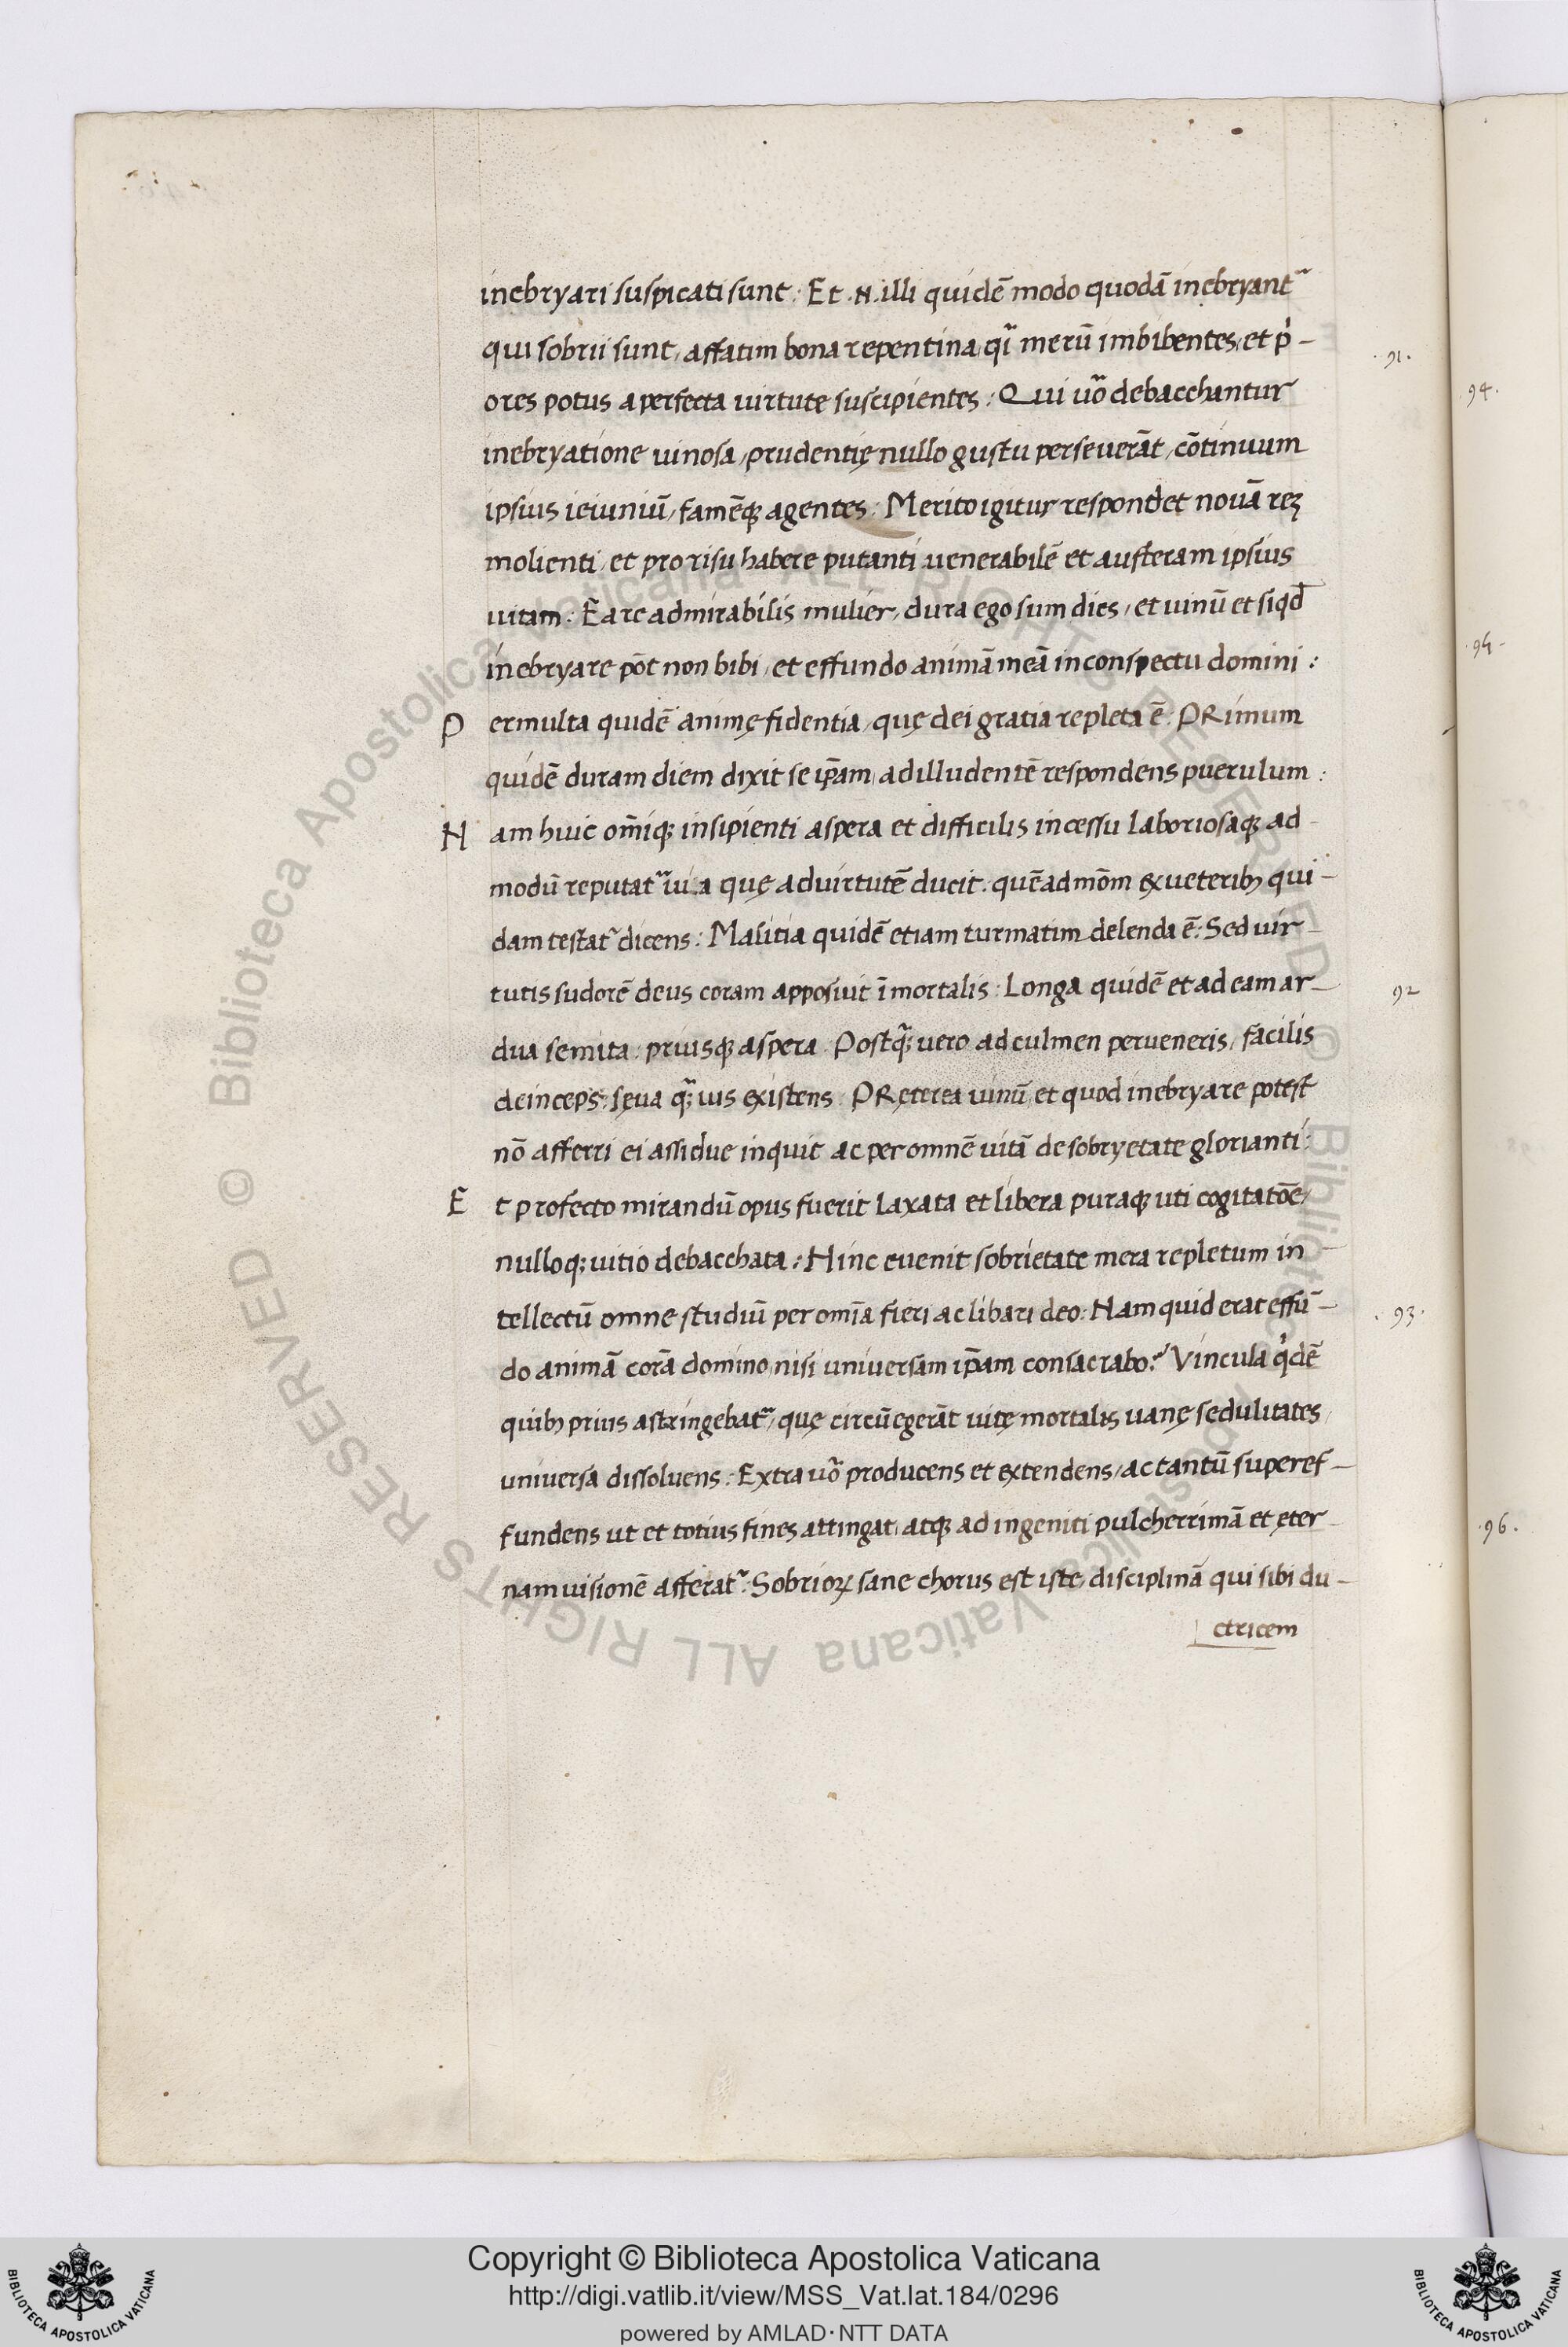 inebryari suspicati sunt: Et .N. illi quidē modo quodā inebryantᷣ
qui sobrii sunt, affatim bona repentina, qᷓi merū imbibentes, et p̓-
ores potus a perfecta uirtute suscipientes: Qui uo᷑ debacchantur
inebryatione uinosa, prudentię nullo gustu perseuerāt, cōtinuum
ipsius ieiuniū, famēqꝫ agentes: Merito igitur respondet nouā reꝝ
molienti, et pro risu habere putanti uenerabilē et austeram ipsius
uitam: Ea re admirabilis mulier, dura ego sum dies, et uinū et siqd̄
inebryare pōt non bibi, et effundo animā meā in conspectu domini:
P ermulta quidē animę fidentia, quę dei gratia repleta ē. PRimum
quidē duram diem dixit se ip̄am, ad illudentē respondens puerulum:
N am huic om̄iqꝫ insipienti aspera et difficilis incessu laboriosaqꝫ ad-
modū reputatᷣ uia quę ad uirtutē ducit. quēadmōm ex ueteribꝫ qui-
dam testatᷣ dicens: Malitia quidē etiam turmatim delenda ē: Sed uir-
tutis sudorē deus coram apposuit īmortalis: Longa quidē et ad eam ar-
dua semita: priusqꝫ aspera. Postqᷓꝫ uero ad culmen perueneris, facilis
deinceps: sęua qᷓꝫuis existens. PRęterea uinū, et quod inebryare potest
nō afferri ei assidue inquit ac per omnē uitā de sobryetate glorianti:
E t profecto mirandū opus fuerit laxata et libera puraqꝫ uti cogitatōe,
nulloqꝫ uitio debacchata: Hinc euenit sobrietate mera repletum in-
tellectū omne studiū per omīa fieri ac libari deo: Nam quid erat effū-
do animā corā domino, nisi uniuersam ip̄am consacrabo? Vincula q̓dē
quibꝫ prius astringebatᷣ, quę circūegerāt uitę mortalis uanę sedulitates,
uniuersa dissoluens: Extra uo᷑ producens et extendens, ac tantū superef-
fundens ut et totius fines attingat, atqꝫ ad ingeniti pulcherrimā et ęter-
nam uisionē afferatᷣ: Sobrioꝝ sane chorus est iste, disciplinā qui sibi du-
ctricem
.91.
92
.93.
.94.
.95-
.96.
© Biblioteca Apostolica Vaticana ALL RIGHTS RESERVED
© Biblioteca Apostolica Vaticana ALL RIGHTS RESERVED
Copyright © Biblioteca Apostolica Vaticana
http://digi.vatlib.it/view/MSS_Vat.lat.184/0296
powered by AMLAD·NTT DATA
BIBLIOTECA APOSTOLICA VATICANA
BIBLIOTECA APOSTOLICA VATICANA